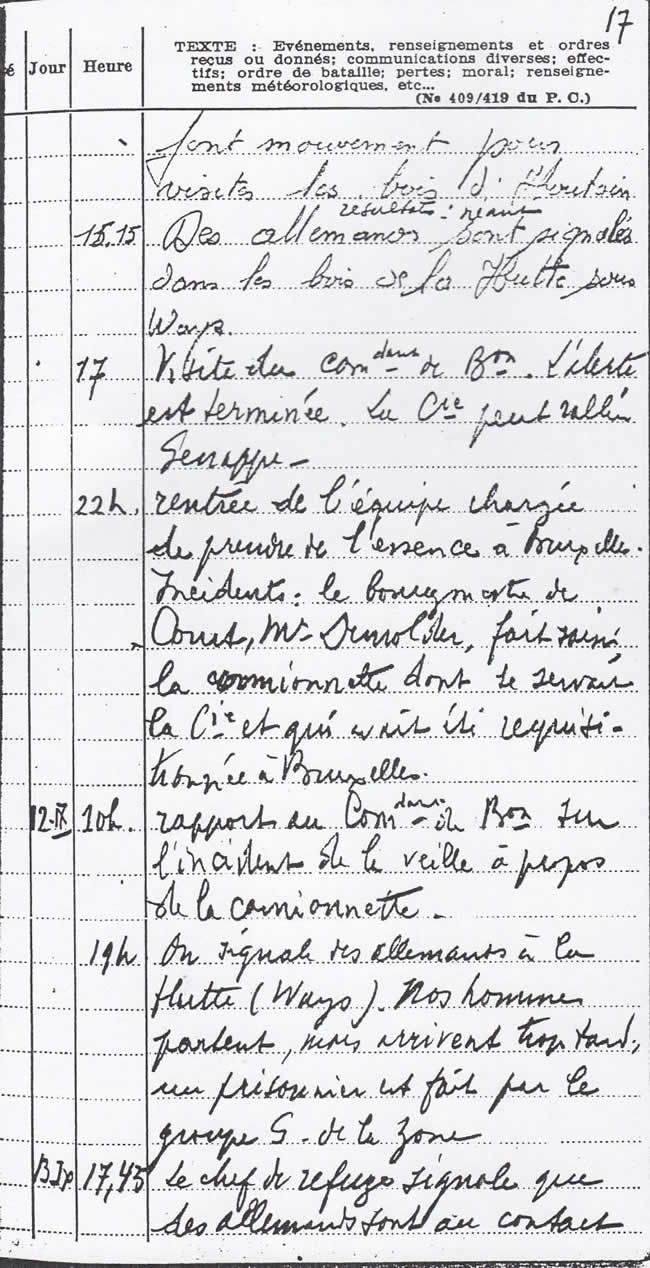 17
é Jour Heure TEXTE : Evénements, renseignements et ordres
reçus ou donnés; communications diverses; effec-
tifs; ordre de bataille; pertes; moral; renseigne-
ments météorologiques, etc...
(No 409/419 du P. C.)
font mouvement pour
visiter les bois d'
résultats : néant
15.15 Des allemands sont signalés
dans les bois de la Hutte sous
Ways.
17 Visite du Comdant de Bon. L'alerte
est terminée. La Cie peut rallier
Genappe -
22h. rentrée de l'équipe chargée
de prendre de l'essence à Bruxelles.
Incidents : le bourgmestre de
Court, Mr Demolder, fait saisir
la camionnette dont se servait
la Cie et qui avait été réquisi-
tionnée à Bruxelles.
12-IX 10h. rapport au Comdant de Bon sur
l'incident de la veille à propos
de la camionnette.
19h On signale des allemands à la
Hutte (Ways). Nos hommes
partent, mais arrivent trop tard;
un prisonnier est fait par le
groupe G. de la zone
17,45 Le chef de refuge signale que
des allemands sont au contact